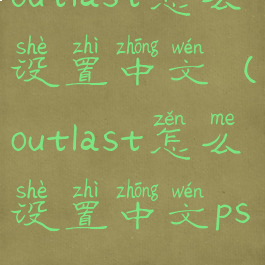 outlast怎么
shè zhì zhōng wén
设置中文(
zěn me
outlast怎么
shè zhì zhōng wén
设置中文ps